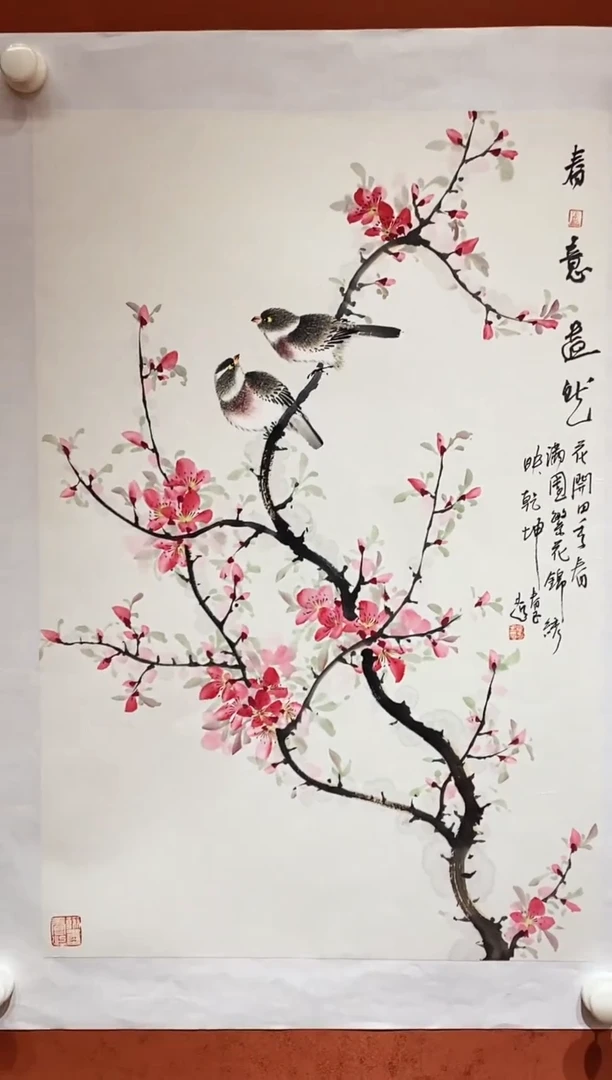 春意盎然
花開四季春
滿園繁花錦繡
映乾坤